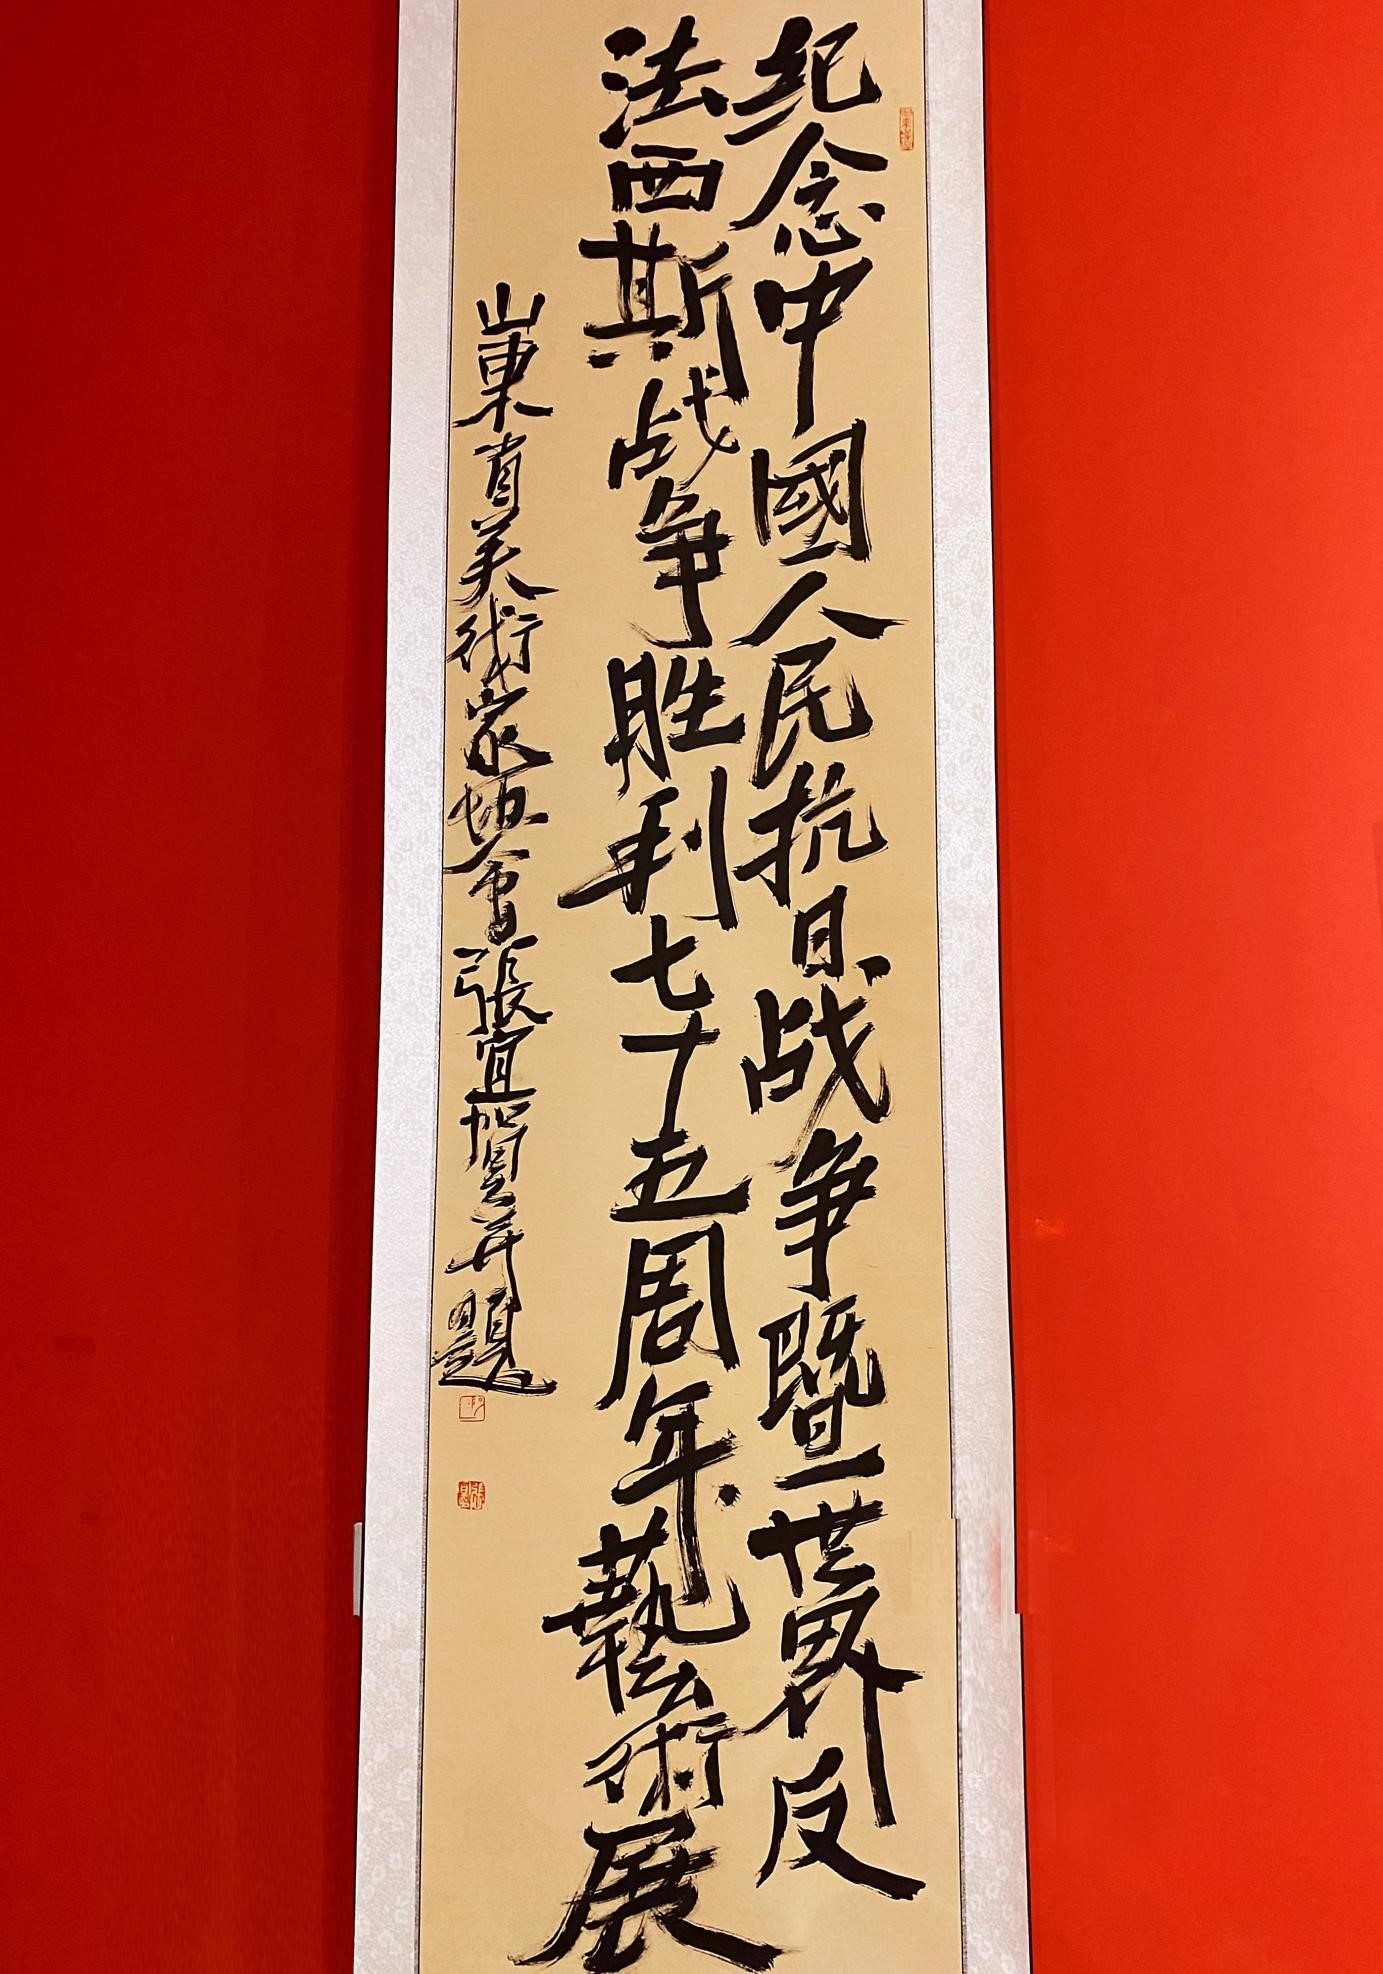 纪念中國人民抗日战争暨世界反
法西斯战争胜利七十五周年藝術展
山東省美術家协會張宜賀并題